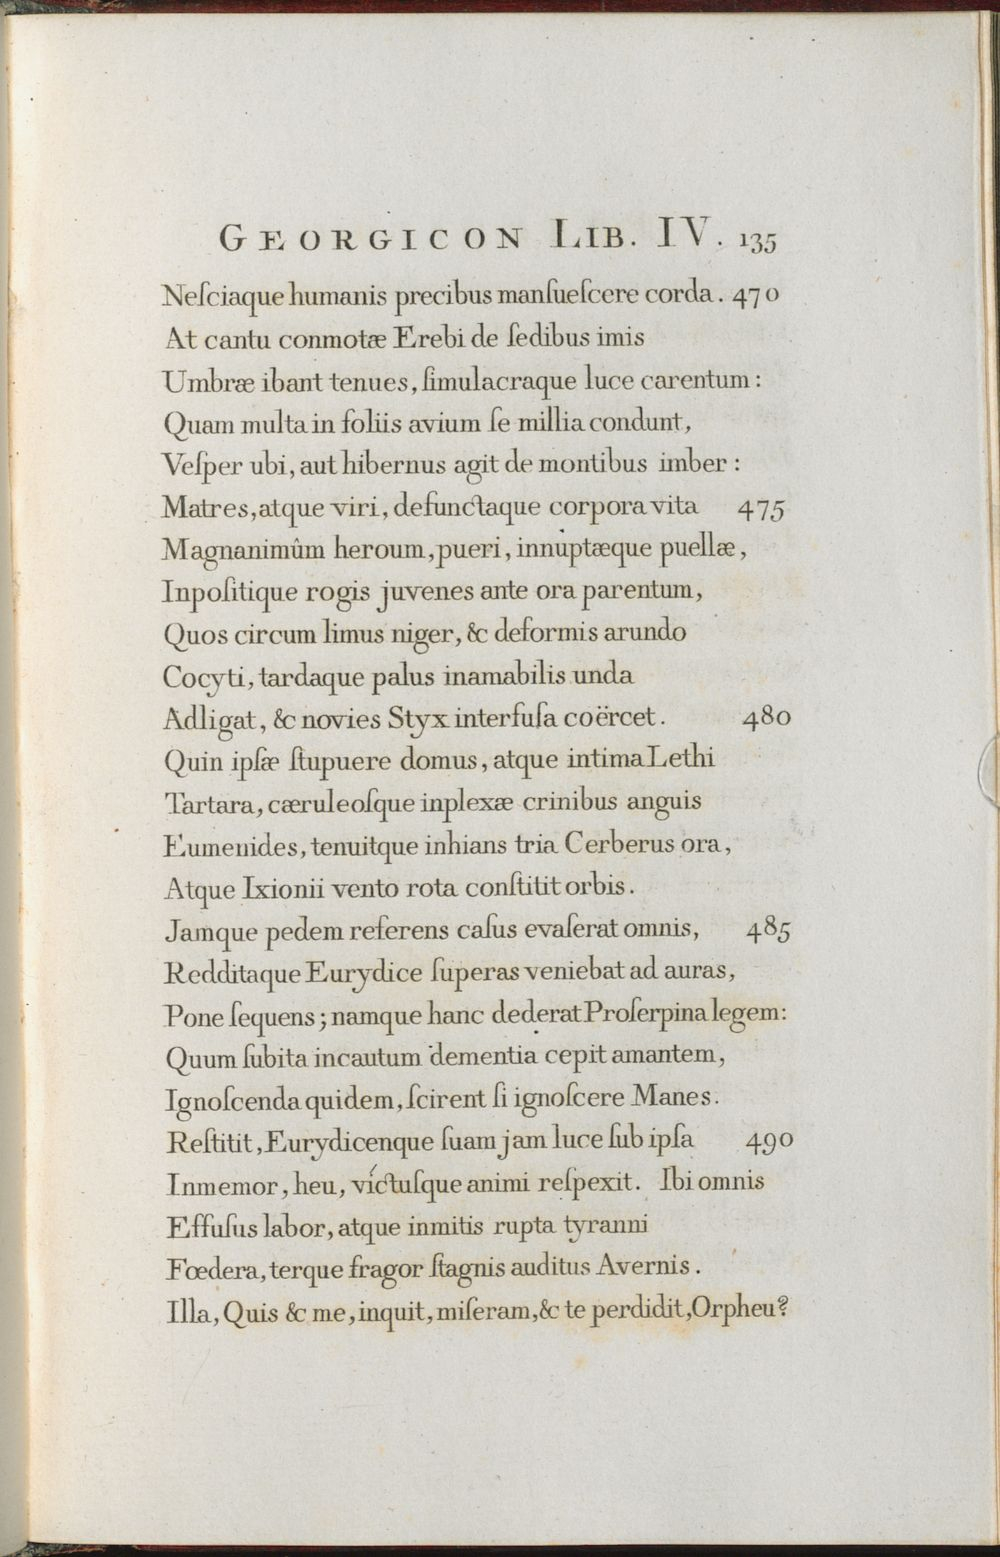 GEORGICON LIB. IV. 135
Neſciaque humanis precibus manſueſcere corda. 470
At cantu conmotæ Erebi de ſedibus imis
Umbræ ibant tenues, ſimulacraque luce carentum:
Quam multa in foliis avium ſe millia condunt,
Veſper ubi, aut hibernus agit de montibus imber:
Matres, atque viri, defunctaque corpora vita 475
Magnanimûm heroum, pueri, innuptæque puellæ,
Inpoſitique rogis juvenes ante ora parentum,
Quos circum limus niger, & deformis arundo
Cocyti, tardaque palus inamabilis unda
Adligat, & novies Styx interfuſa coërcet. 480
Quin ipſæ ſtupuere domus, atque intima Lethi
Tartara, cæruleoſque inplexæ crinibus anguis
Eumenides, tenuitque inhians tria Cerberus ora,
Atque Ixionii vento rota conſtitit orbis.
Jamque pedem referens caſus evaſerat omnis, 485
Redditaque Eurydice ſuperas veniebat ad auras,
Pone ſequens; namque hanc dederat Proſerpina legem:
Quum ſubita incautum dementia cepit amantem,
Ignoſcenda quidem, ſcirent ſi ignoſcere Manes.
Reſtitit, Eurydicenque ſuam jam luce ſub ipſa 490
Inmemor, heu, victuſque animi reſpexit. Ibi omnis
Effuſus labor, atque inmitis rupta tyranni
Fœdera, terque fragor ſtagnis auditus Avernis.
Illa, Quis & me, inquit, miſeram, & te perdidit, Orpheu?